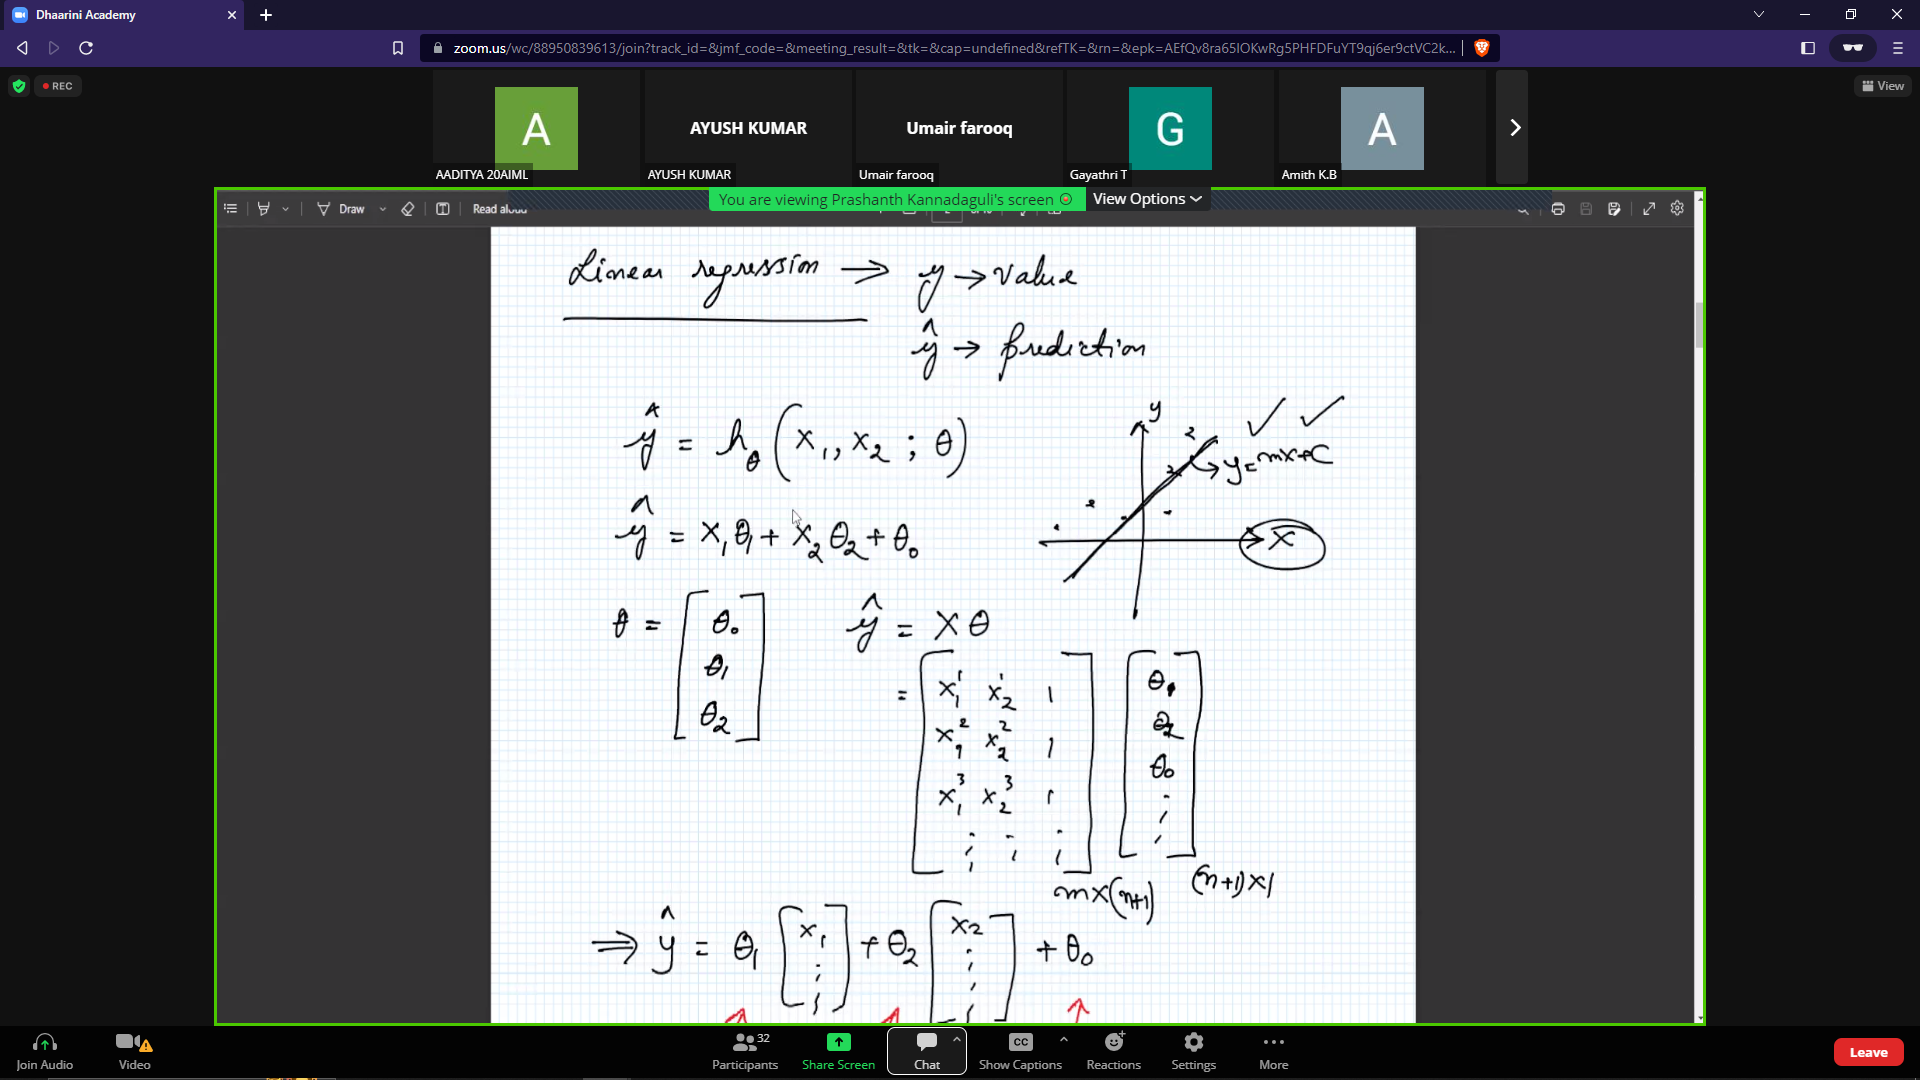 Dhaarini Academy
zoom.us/wc/88950839613/join?track_id=&jmf_code=&meeting_result=&tk=&cap=undefined&refTK=&rn=&epk=AEfQv8ra65IOKwRg5PHFDFuYT9qj6er9ctVC2k...
REC
View
A
AYUSH KUMAR
Umair farooq
G
A
AADITYA 20AIML
AYUSH KUMAR
Umair farooq
Gayathri T
Amith K.B
You are viewing Prashanth Kannadaguli's screen
View Options
Draw
Read aloud
Linear regression ⟹ y → value
ŷ → prediction
ŷ = hθ (x₁, x₂ ; θ)
y
y = mx+c
x
ŷ = x₁θ₁ + x₂θ₂ + θ₀
θ = [θ₀ θ₁ θ₂]
ŷ = Xθ
= [x₁¹ x₂¹ 1
x₁² x₂² 1
x₁³ x₂³ 1
⋮ ⋮ ⋮] [θ₁ θ₂ θ₀ ⋮]
m×(n+1) (n+1)×1
⟹ ŷ = θ₁ [x₁ ⋮] + θ₂ [x₂ ⋮] + θ₀
Join Audio
Video
Participants 32
Share Screen
Chat
CC Show Captions
Reactions
Settings
More
Leave